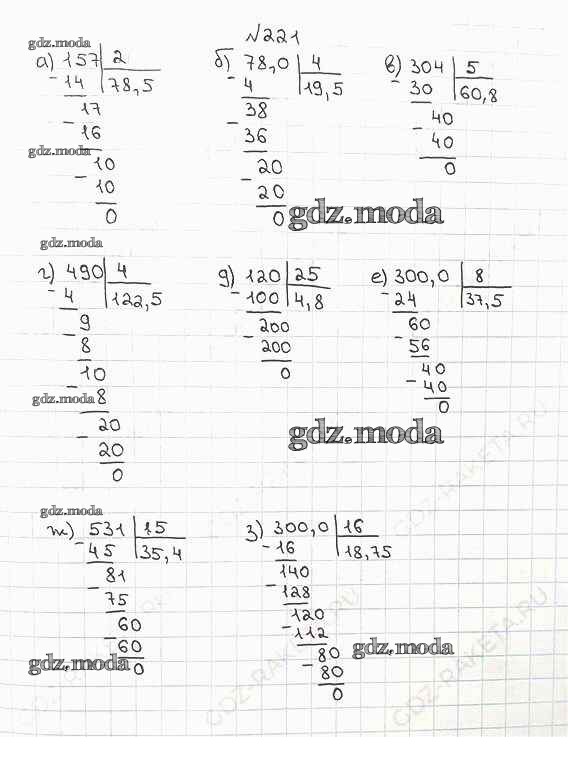 №221
gdz.moda
а) 157 | 2
- 14 | 78,5
17
- 16
gdz.moda
10
- 10
0
б) 78,0 | 4
- 4 | 19,5
38
- 36
20
- 20
0
в) 304 | 5
- 30 | 60,8
40
- 40
0
gdz.moda
gdz.moda
г) 490 | 4
- 4 | 122,5
9
- 8
10
- 8
gdz.moda
20
- 20
0
д) 120 | 25
- 100 | 4,8
200
- 200
0
е) 300,0 | 8
- 24 | 37,5
60
- 56
40
- 40
0
gdz.moda
GDZ-RAKETA.RU
gdz.moda
ж) 531 | 15
- 45 | 35,4
81
- 75
60
- 60
0
gdz.moda
з) 300,0 | 16
- 16 | 18,75
140
- 128
120
- 112
80
- 80
0
gdz.moda
GDZ-RAKETA.RU
GDZ-RAKETA.RU